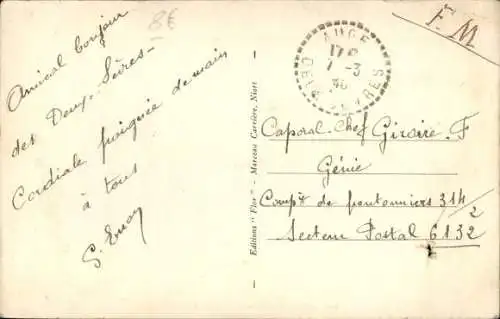 8€
Amical bonjour
des Deux-Sèvres -
Cordiale poignée de main
à tous
Editions "Flor" - Marceau Carrière, Niort
AUGE
17 H
7 -3
40
DEUX SEVRES
F. M
Caporal-Chef Giraire F
Génie
Compie de pontonniers 314/2
Secteur Postal 6132